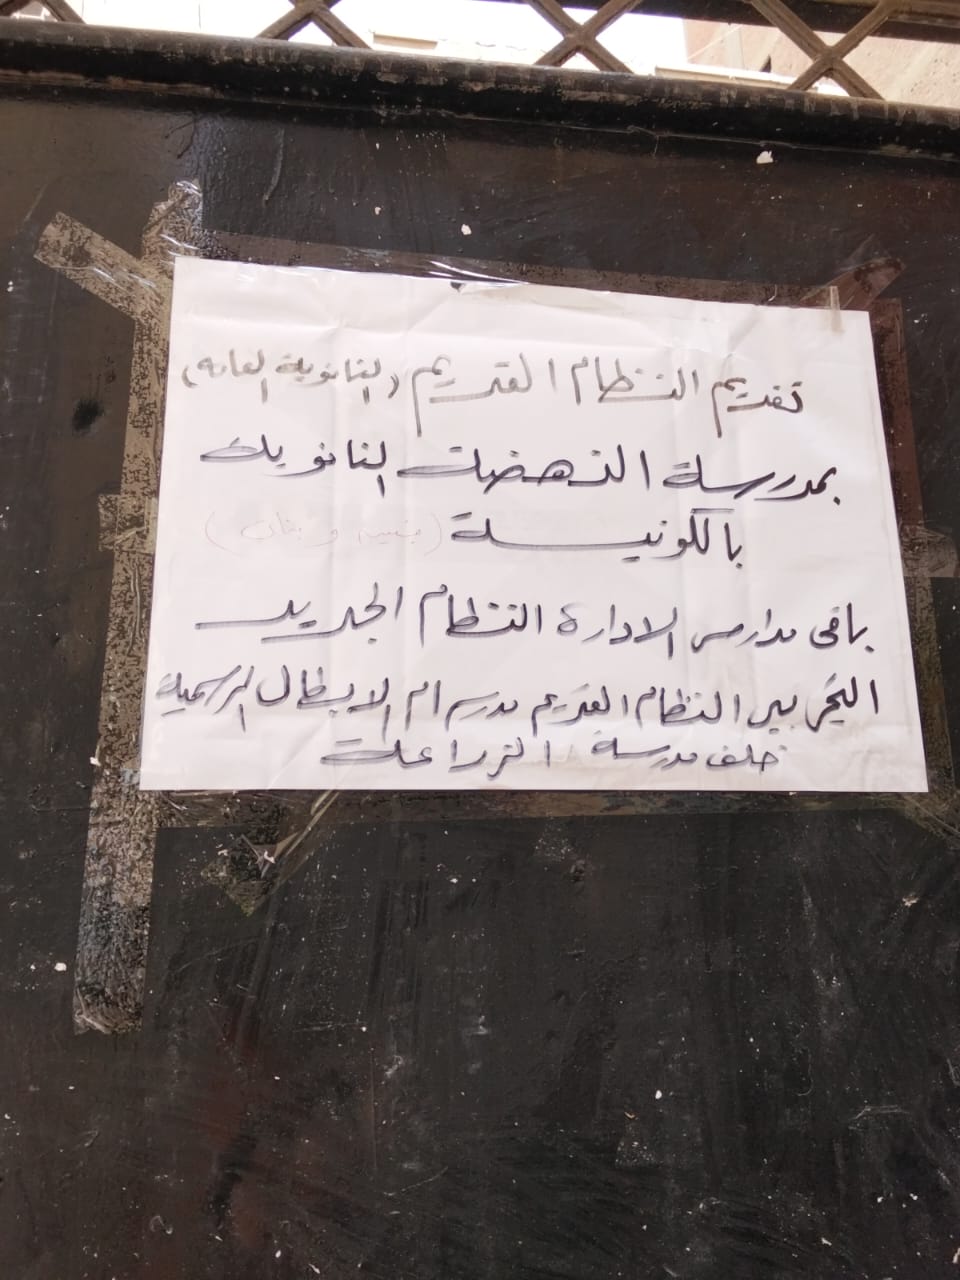 تقديم النظام القديم (الثانوية العامه)
بمدرسة النهضة الثانوية
بالكونيسة (بنين وبنات)
باقى مدارس الادارة النظام الجديد
بين النظام القديم مدرسة ام الابطال الرسمية
خلف مدرسة الزراعة